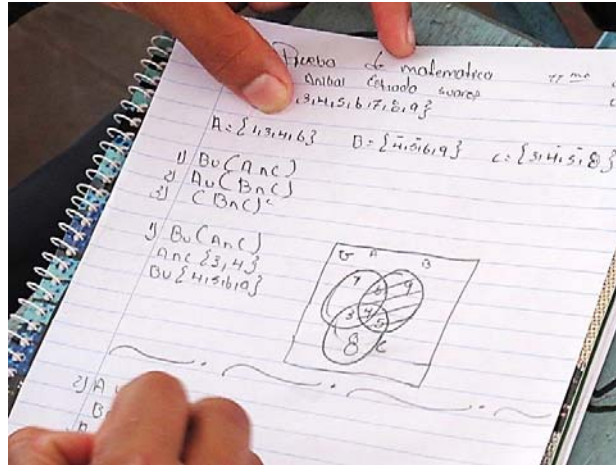 Prueba de matematica
Anibal Estrada suares
,3,4,5,6,7,8,9}
A = {1,3,4,6} B = {4,5,6,9} C = {3,4,5,8}
1) B∪(A∩C)
2) A∪(B∩C)
3) (B∩C)ᶜ
1) B∪(A∩C)
A∩C {3,4}
B∪{4,5,6,9}
U A B
6 9
3 4
5
8 C
2) A
B